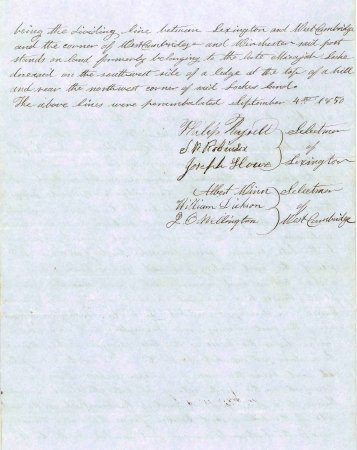 being the dividing line between Lexington and West Cambridge
and the corner of West Cambridge and Winchester said post
stands on land formerly belonging to the late Marajah Locke
deceased on the southwest side of a ledge at the top of a hill
and near the northwest corner of said Lockes land.
The above lines were perambulated September 4th 1850
Philip Russell } Selectmen
S W Robinson } of
Joseph Howe } Lexington
Albert Winn } Selectmen
William Dickson } of
J. O. Wellington } West Cambridge